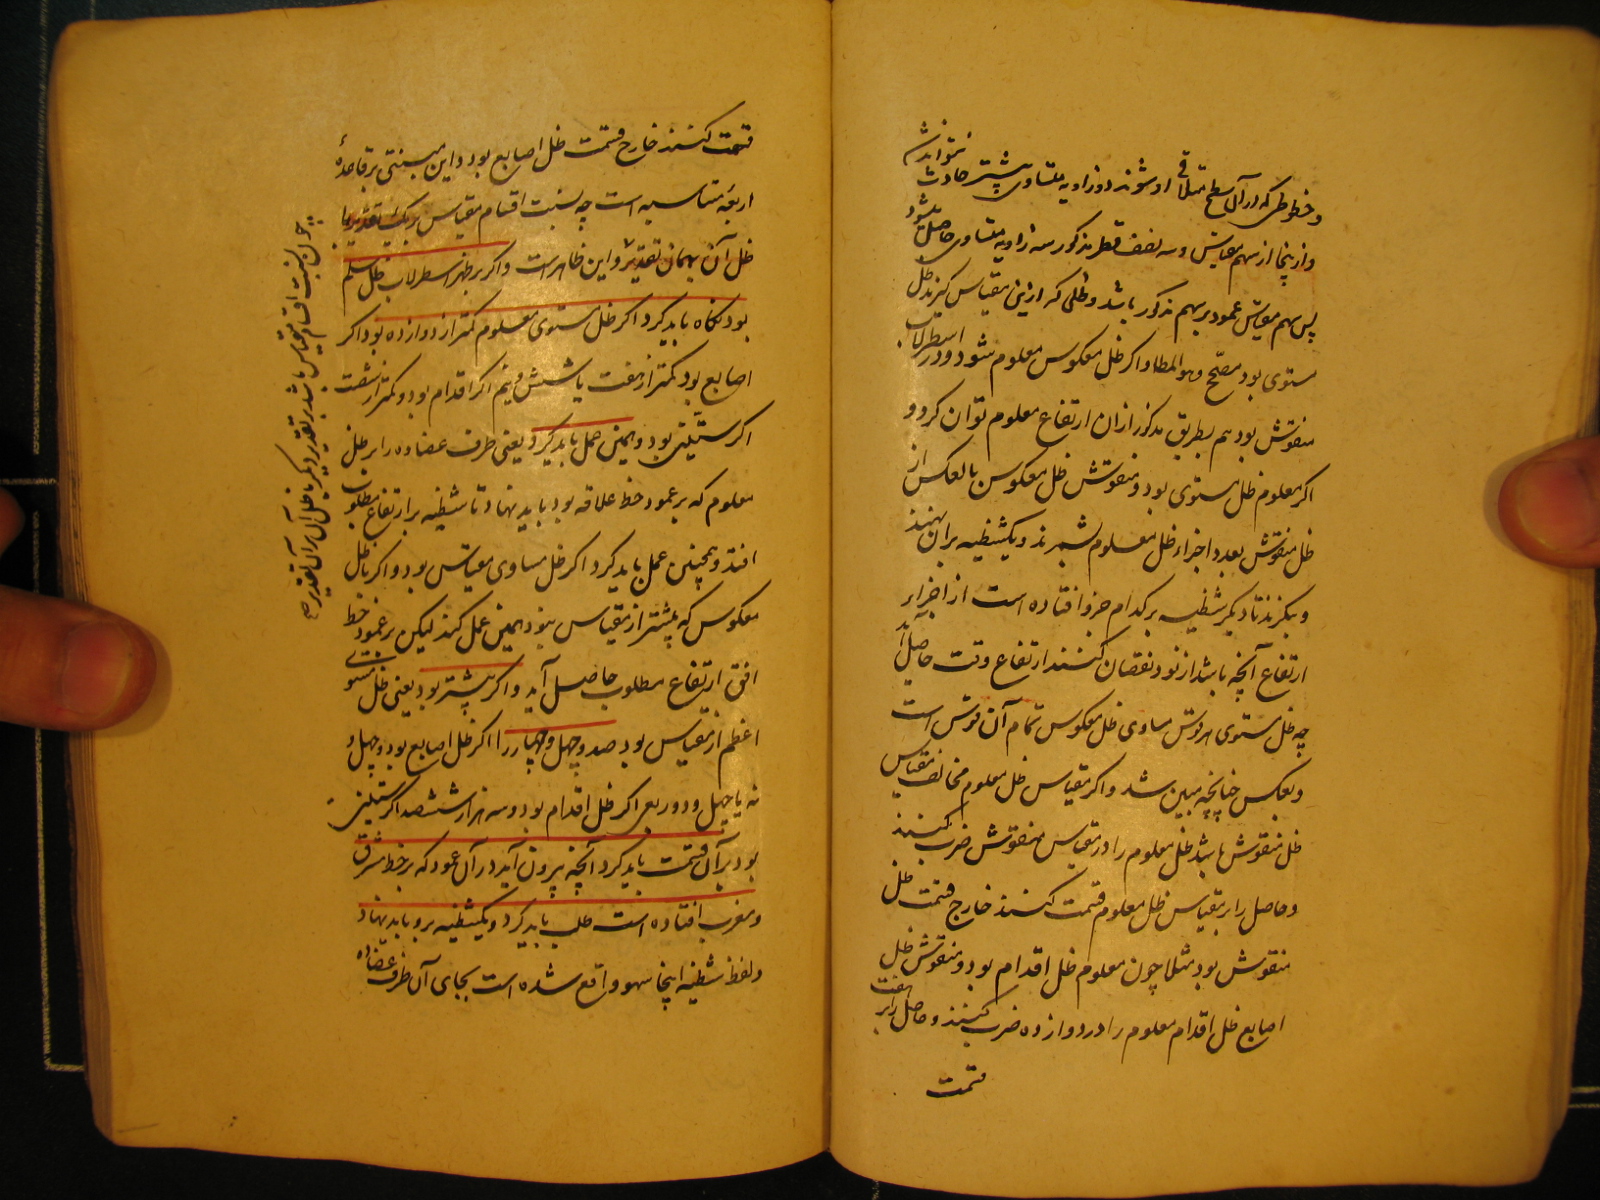 و خطوطی که در آن سطح ملاقی او شوند دو زاویه متساوی بیشتر حادث نتوانند شد
و از ینجا از سهم مقیاس و سه نصف قطر مذکور سه زاویه متساوی حاصل میشود
پس سهم مقیاس عمود بر سهم مذکور باشد و ظلی که ازین مقیاس گیرند ظل
مستوی بود مصحح و هو المط و اگر ظل معکوس معلوم شود و در اسطرلاب
منقوش بود هم بطریق مذکور ازان ارتفاع معلوم توان کرد و
اگر معلوم ظل مستوی بود و منقوش ظل معکوس بالعکس از
ظل منقوش بعدد اجزاء ظل معلوم شمرند و یک شظیه بران نهند
و بنگرند تا دیگر شظیه بر کدام جزو افتاده است از اجزاء
ارتفاع آنچه باشد از نود نقصان کنند ارتفاع وقت حاصل آید
چه ظل مستوی هر قوس مساوی ظل معکوس تمام آن قوس است
و بعکس چنانچه مبین شد و اگر مقیاس ظل معلوم مخالف مقیاس
ظل منقوش باشد ظل معلوم را در مقیاس منقوش ضرب کنند
و حاصل را بر مقیاس ظل معلوم قسمت کنند خارج قسمت ظل
منقوش بود مثلا چون معلوم ظل اقدام بود و منقوش ظل
اصابع ظل اقدام معلوم را در دوازده ضرب کنند و حاصل را بر هفت
قسمت
قسمت کنند خارج قسمت ظل اصابع بود و این مبتنی بر قاعدهٔ
اربعهٔ متناسبه است چه نسبت اقسام مقیاس بر یک تقدیر با
ظل آن بهمان تقدیر و این ظاهر است و اگر بر ظهر اسطرلاب ظل سلم
بود نگاه باید کرد اگر ظل مستوی معلوم کمتر از دوازده بود اگر
اصابع بود کمتر از هفت یا شش و نیم اگر اقدام بود و کمتر از شصت
اگر ستینی بود و همین عمل باید کرد یعنی طرف عضاده را بر ظل
معلوم که بر عمود خط علاقه بود باید نهاد تا شظیه بر ارتفاع مطلوب
افتد و همچنین عمل باید کرد اگر ظل مساوی مقیاس بود و اگر با ظل
معکوس که بیشتر از مقیاس نبود همین عمل کنند لیکن بر عمود خط
افق ارتفاع مطلوب حاصل آید و اگر بیشتر بود یعنی ظل مستوی
اعظم از مقیاس بود صد و چهل و چهار را اگر ظل اصابع بود و چهل و
نه یا چهل و دو ربعی اگر ظل اقدام بود و سه هزار ششصد اگر ستینی
بود بر آن قسمت باید کرد آنچه بیرون آید در آن عمود که بر خط مشرق
و مغرب افتاده است طلب باید کرد و یک شظیه برو باید نهاد
و لفظ شظیه اینجا سهو واقع شده است بجای آن طرف عضاده
چون نسبت اقسام مقیاس باشد بتقدیر دیگر با ظل آن برآن تقدیر صح